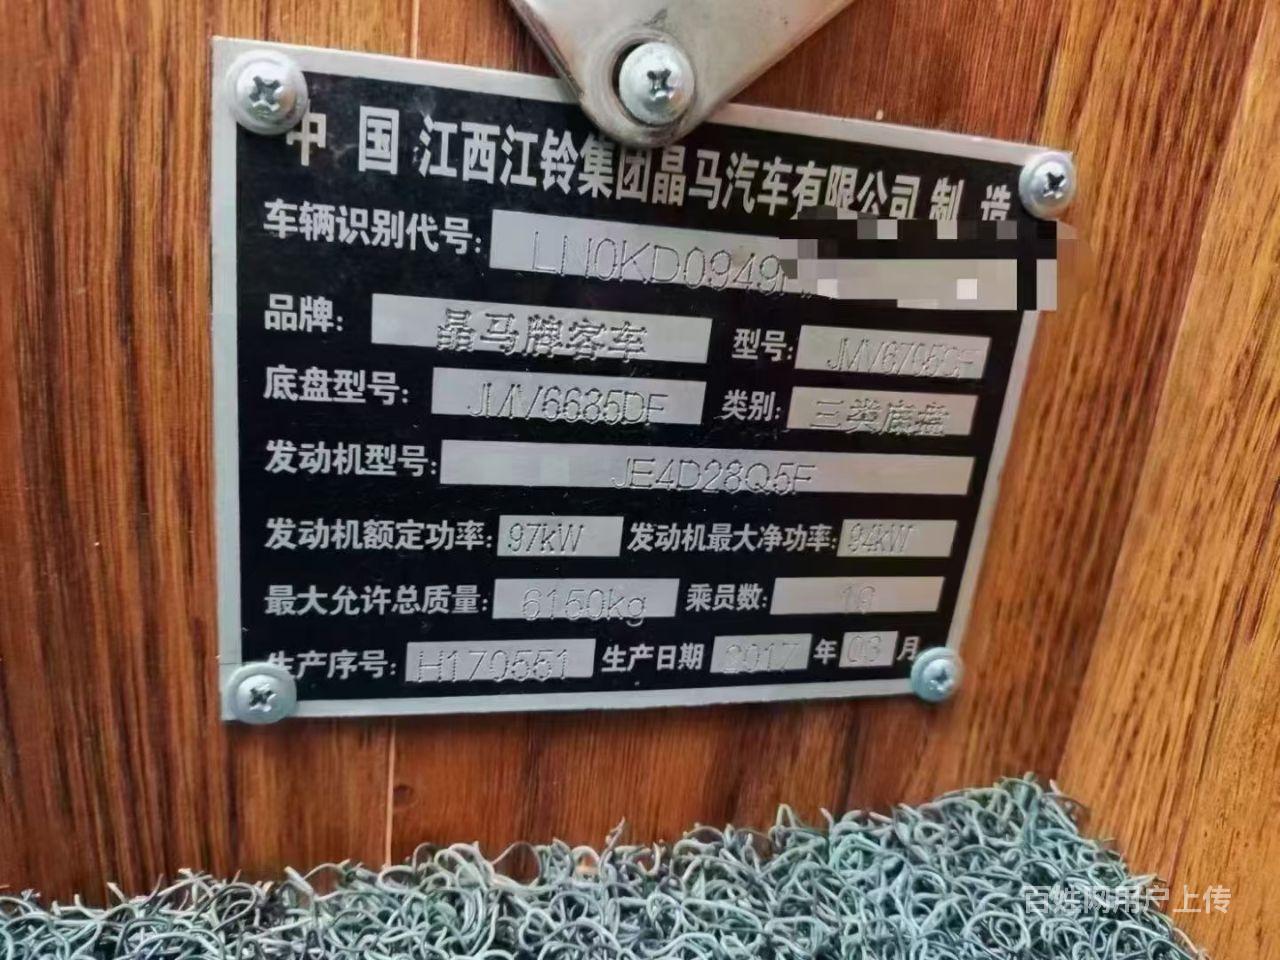 中国 江西江铃集团晶马汽车有限公司 制造
车辆识别代号: LN0KD0949
品牌: 晶马牌客车 型号: JMV6795CF
底盘型号: JMV6685DF 类别: 三类底盘
发动机型号: JE4D28Q5F
发动机额定功率: 97kW 发动机最大净功率: 94kW
最大允许总质量: 6150kg 乘员数:
生产序号: H170551 生产日期 2017 年 03 月
百姓网用户上传